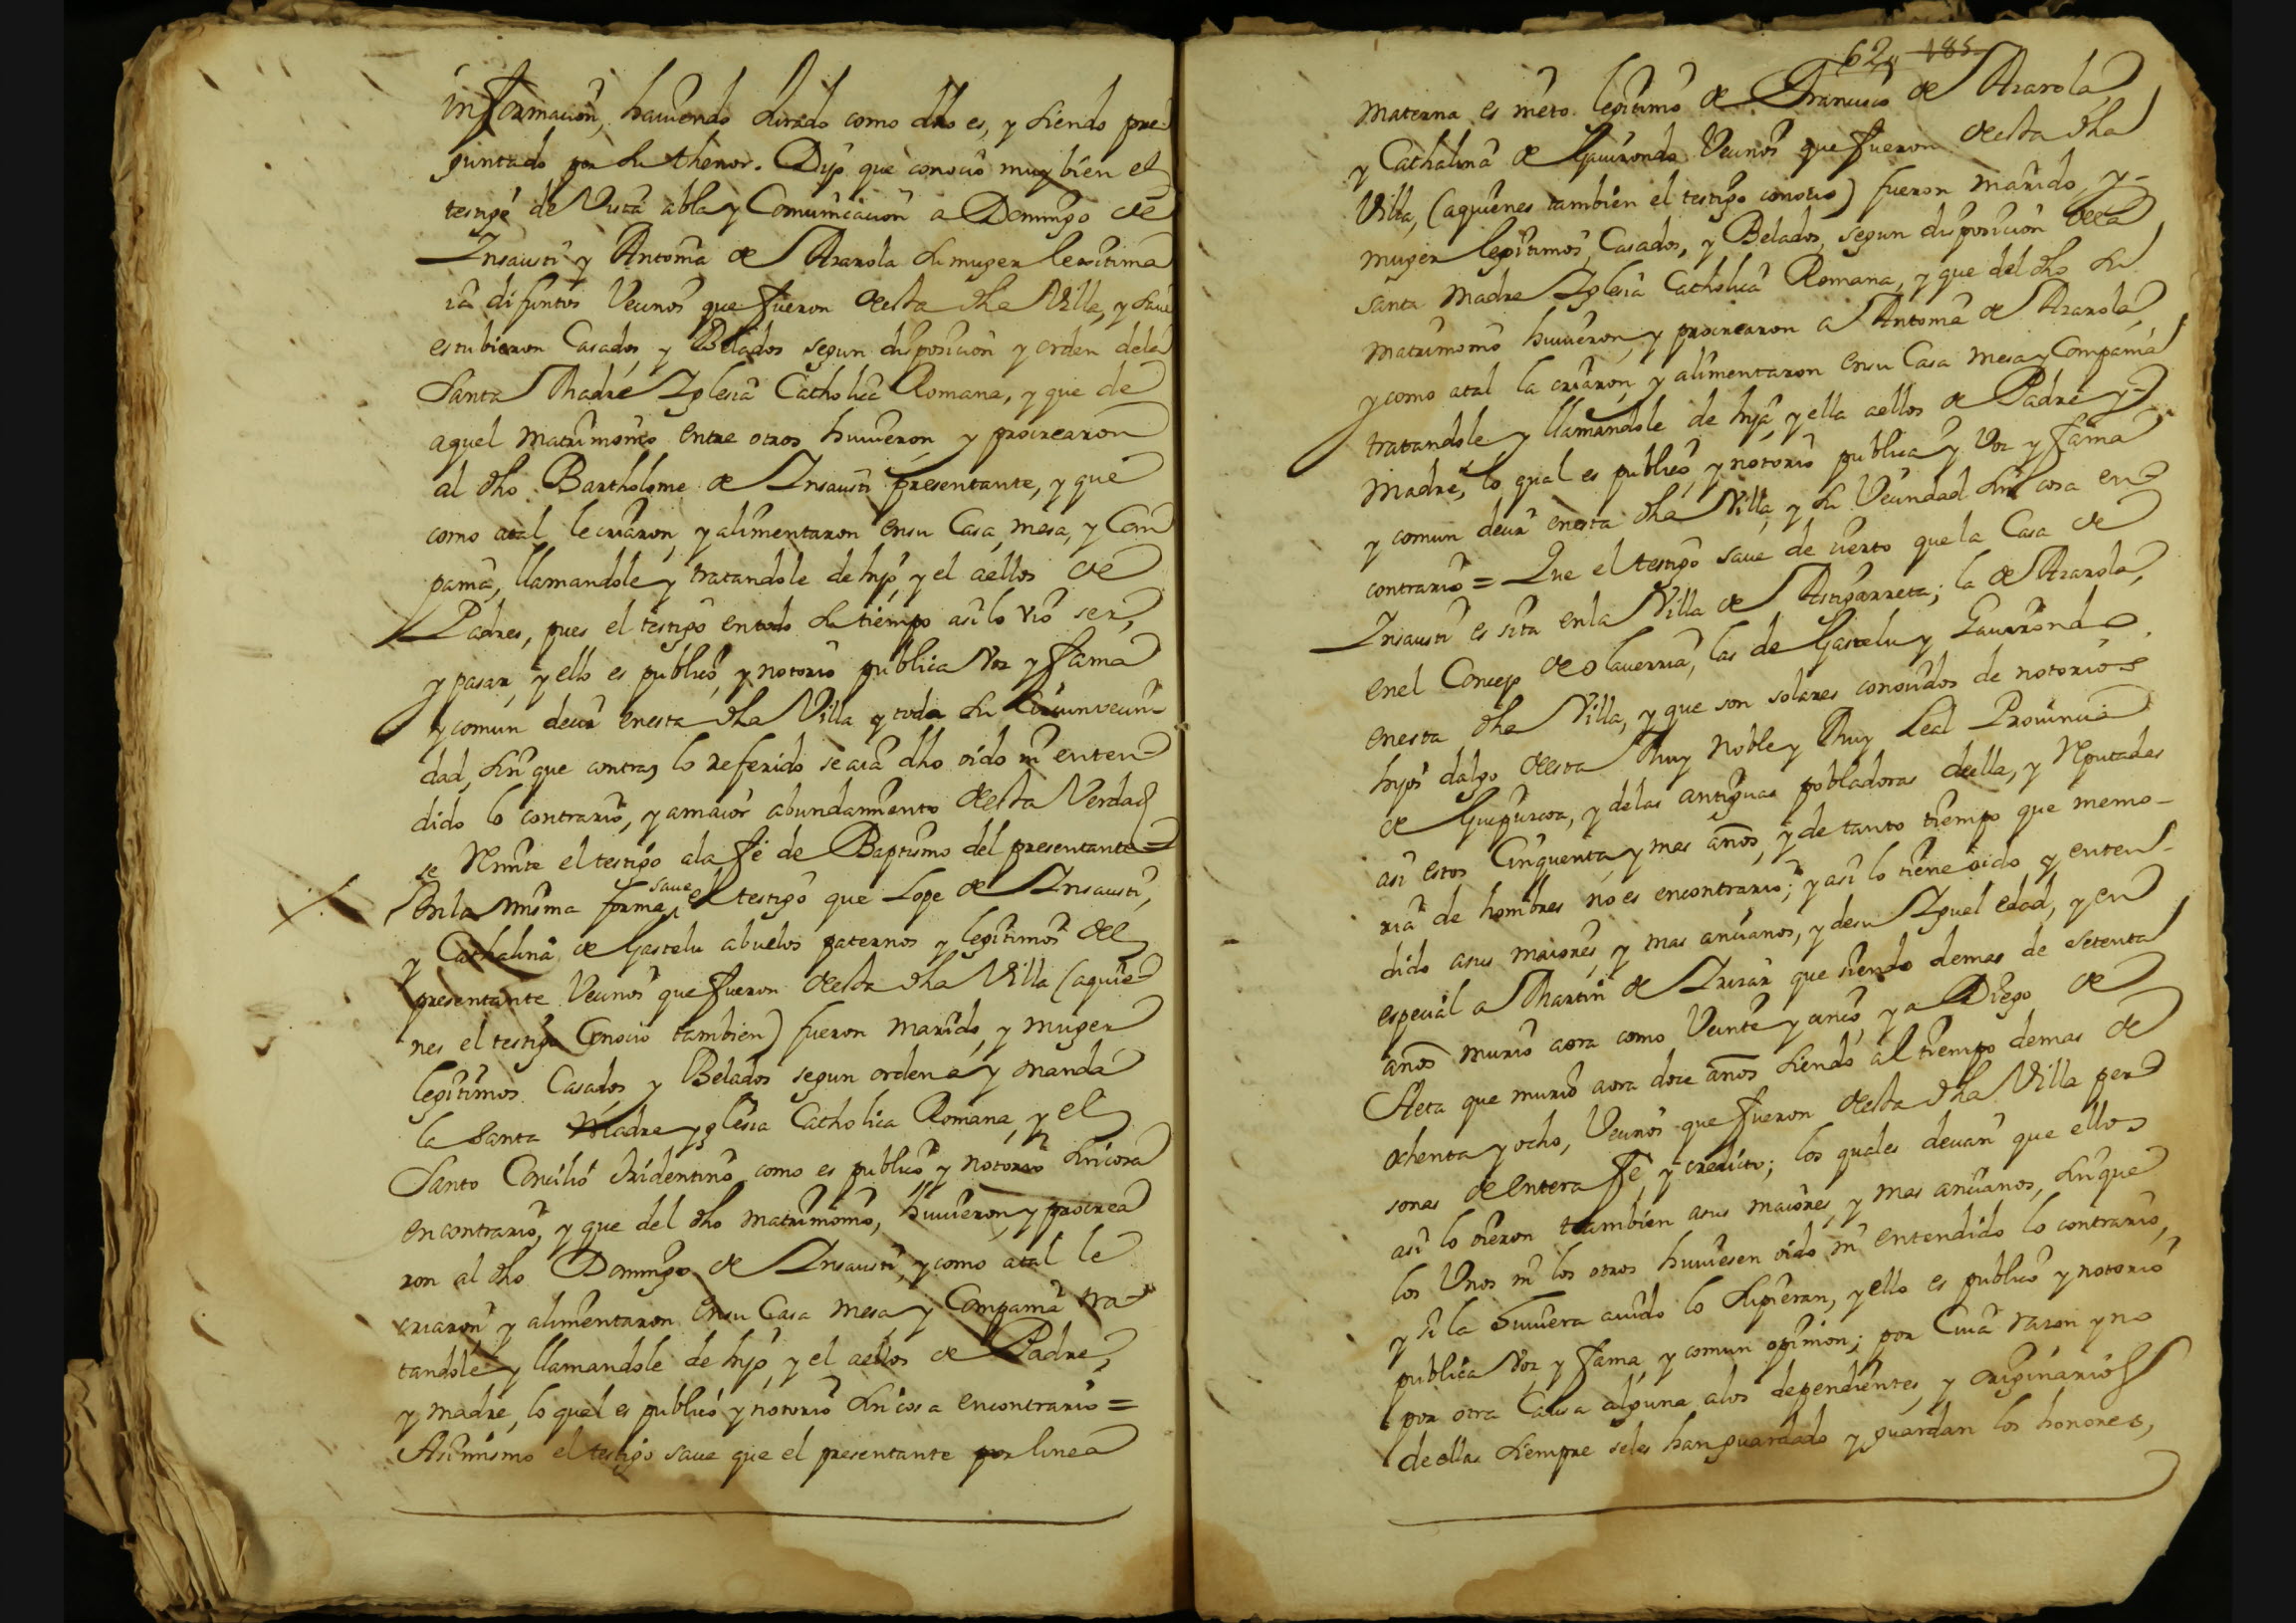 informacion, haviendo Jurado como dho es, y siendo pre-
guntado por su thenor. Dijo que conocio muy bien el
testigo de Vista abla y Comunicacion a Domingo de
Insausti y Antonia de Ararola su muger legitima
ia difuntos Vecinos que fueron desta dha Villa, y save
estubieron Casados y Belados segun disposicion y orden dela
Santa Madre Iglesia Catholica Romana, y que de
aquel matrimonio entre otros huvieron, y procrearon
al dho Bartholome de Insausti presentante, y que
como atal le criaron, y alimentaron ensu Casa, mesa, y Com
pania, llamandole y tratandole de hijo, y el aellos de
Padres, pues el testigo entodo su tiempo asi lo vio ser,
y pasar, y ello es publico, y notorio publica Voz y fama
y comun decir enesta dha Villa y toda su Circunvecin-
dad, sin que contra lo referido se aia dho oido ni enten
dido lo contrario, y amaior abundamiento desta Verdad
se Remite el testigo ala fe de Baptismo del presentante =
Enla misma forma save el testigo que Lope de Insausti,
y Cathalina de Gastelu abuelos paternos y legitimos del
presentante Vecinos que fueron desta dha Villa (aquie
nes el testigo Conocio tambien) fueron marido, y muger
legitimos Casados y Belados segun ordena y manda
la Santa Madre yglesia Catholica Romana, y el
Santo Concilio tridentino, como es publico, y notorio sin cosa
encontrario, y que del dho matrimonio, huvieron, y procrea
ron al dho Domingo de Insausti, y como atal le
criaron y alimentaron ensu Casa mesa y Compania tra-
tandole y llamandole de hijo, y el aellos de Padre,
y madre, lo qual es publico y notorio sin cosa encontrario =
Asimismo el testigo save que el presentante por linea
62, 185
materna es nieto legitimo de Francisco de Ararola
y Cathalina de Gavironda Vecinos que fueron desta dha
Villa, (aquienes tambien el testigo conocio) fueron marido, y-
muger legitimos, Casados, y Belados, segun disposicion dela
santa madre Iglesia Catholica Romana, y que del dho su
matrimonio huvieron, y procrearon a Antonia de Ararola
y como atal la criaron, y alimentaron ensu Casa mesa y Compania
tratandole y llamandole de hija, y ella aellos de Padre y-
Madre, lo qual es publico, y notorio publica y Voz y fama
y comun decir enesta dha Villa, y su Vecindad sin cosa en
contrario = Que el testigo save de cierto que la Casa de
Insausti es sita enla Villa de Astigarreta; la de Ararola,
enel Concejo de olaverria, las de Gastelu y Gavironda
enesta dha Villa, y que son solares conocidos de notorios
hijos dalgo desta Muy Noble y Muy Leal Provincia
de Guipuzcoa, y delas antiguas pobladoras della, y Reputadas
asi estos Cinquenta y mas años, y de tanto tiempo que memo-
ria de hombres no es encontrario; y asi lo tiene oido y enten-
dido asus maiores, y mas ancianos, y desu Igual edad, y en
especial a Martin de Irizar que siendo demas de setenta
años murio aora como Veinte y cinco, y a Diego de
Aeta que murio aora doze años siendo al tiempo demas de
ochenta y ocho, Vecinos que fueron desta dha Villa per
sonas de entera fe, y credito; los quales decian que ellos
asi lo oieron tambien asus maiores, y mas ancianos, sin que
los Unos ni los otros huviesen oido ni entendido lo contrario,
y si la huviera avido lo supieran, y ello es publico y notorio
publica Voz, y fama, y comun opinion; por Cuia razon y no
por otra Causa alguna alos dependientes, y originarios
de ellas siempre seles han guardado y guardan los honores,